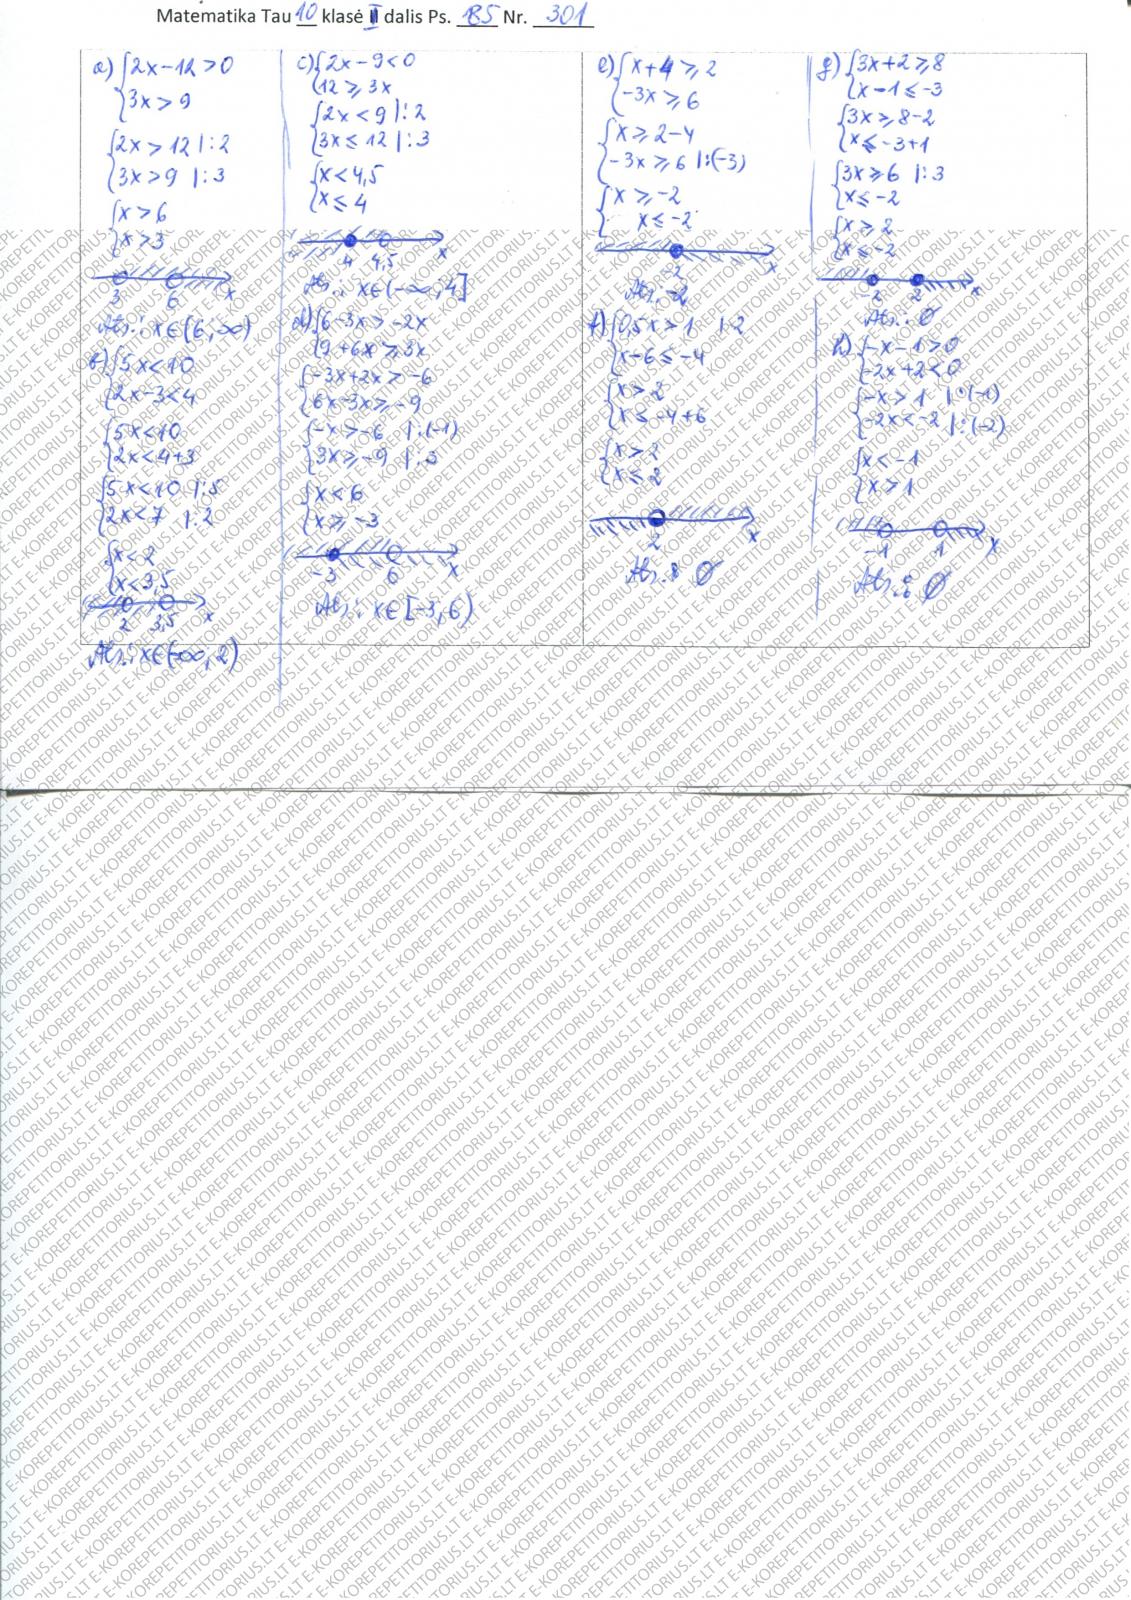 Matematika Tau 10 klasė II dalis Ps. 185 Nr. 301
a) {2x-12>0
{3x>9
{2x>12 |:2
{3x>9 |:3
{x>6
{x>3
3 6 x
Ats.: x∈(6;∞)
b) {5x<10
{2x-3<4
{5x<10
{2x<4+3
{5x<10 |:5
{2x<7 |:2
{x<2
{x<3,5
2 3,5 x
Ats.: x∈(-∞,2)
c) {2x-9<0
{12⩾3x
{2x<9 |:2
{3x≤12 |:3
{x<4,5
{x≤4
4 4,5 x
Ats.: x∈(-∞,4]
d) {6-3x>-2x
{9+6x⩾3x
{-3x+2x>-6
{6x-3x⩾-9
{-x>-6 |:(-1)
{3x⩾-9 |:3
{x<6
{x⩾-3
-3 6 x
Ats.: x∈[-3,6)
e) {x+4⩾2
{-3x⩾6
{x⩾2-4
{-3x⩾6 |:(-3)
{x⩾-2
{x≤-2
-2 x
Ats.: -2
f) {0,5x>1 |·2
{x-6≤-4
{x>2
{x≤-4+6
{x>2
{x≤2
2 x
Ats.: ∅
g) {3x+2⩾8
{x-1≤-3
{3x⩾8-2
{x≤-3+1
{3x⩾6 |:3
{x≤-2
{x⩾2
{x≤-2
-2 2 x
Ats.: ∅
h) {-x-1>0
{-2x+2<0
{-x>1 |·(-1)
{-2x<-2 |:(-2)
{x<-1
{x>1
-1 1 x
Ats.: ∅
E-KOREPETITORIUS.LT